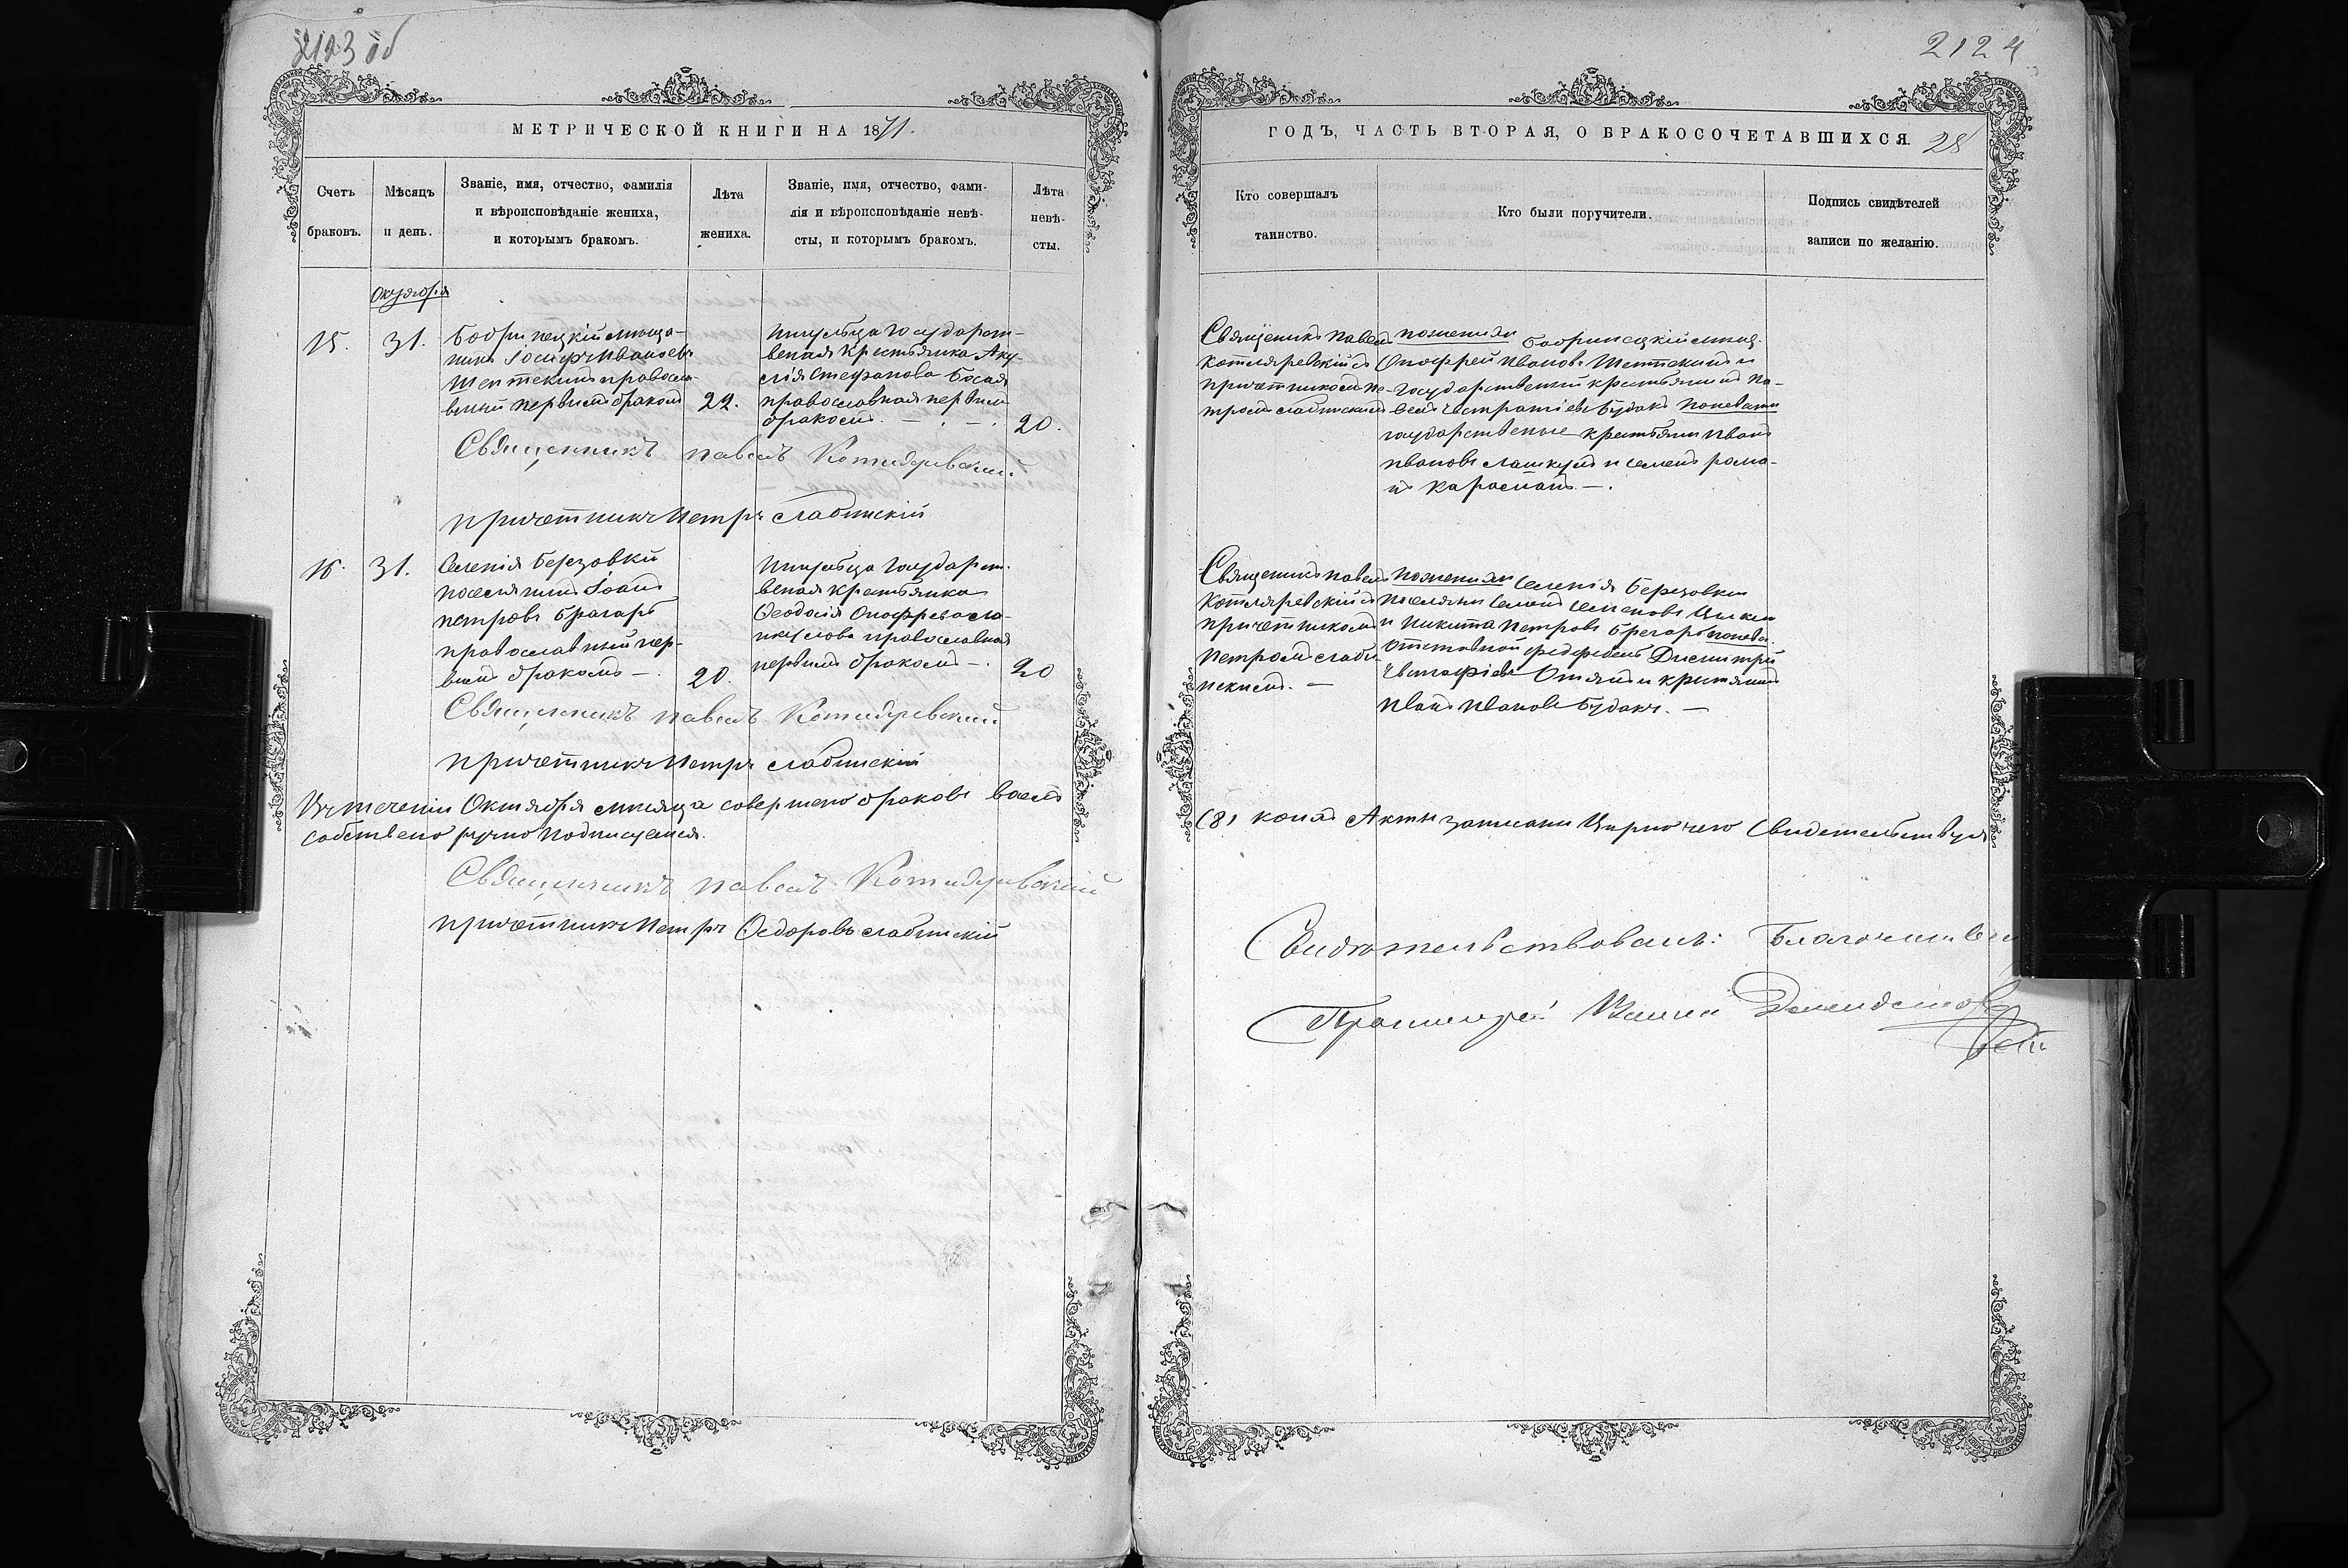 2123 об
МЕТРИЧЕСКОЙ КНИГИ НА 1871.
Счетъ браковъ.
Мѣсяцъ и день.
Званіе, имя, отчество, фамилія
и вѣроисповѣданіе жениха,
и которымъ бракомъ.
Лѣта жениха.
Званіе, имя, отчество, фами-
лія и вѣроисповѣданіе невѣ-
сты, и которымъ бракомъ.
Лѣта невѣ-
сты.
Октября
15.
31.
Бобринецкій мѣща-
нинъ Іосифъ Ивановъ
православ-
вный первымъ бракомъ
22.
государст-
веная крестьянка Аку-
лія Стефанова Босая
православная первым
бракомъ. — . — .
20.
Священникъ Павелъ Котляревскій
причетникъ Петръ Слабинскій
16.
31.
Селенія Березовки
поселянинъ Іоанъ
Петровъ Брагарь
православный пер-
вымъ бракомъ — .
20.
государст-
веная крестьянка
Феодосія Онофріева Ла-
шкулова православная
первымъ бракомъ — .
20
Священникъ Павелъ Котляревскій
причетникъ Петръ Слабинскій
Въ теченіи Октября мѣсяца совершено браковъ восемь
собствено ручно подписуемся.
Священникъ Павелъ Котляревскій
причетникъ Петръ Федоровъ Слабинскій
2124
ГОДЪ, ЧАСТЬ ВТОРАЯ, О БРАКОСОЧЕТАВШИХСЯ.
28
Кто совершалъ
таинство.
Кто были поручители.
Подпись свидѣтелей
записи по желанію.
Священикъ Павелъ
Котляревскій съ
причетникомъ Пе-
тромъ Слабинскимъ
по женихи Бобринецкій мѣщ.
Онофрей Ивановъ и
государственый крестьянинъ Па-
велъ Евстратіевъ Будакъ по невѣсти
государственые крестьяни Иванъ
Ивановъ Лашкулъ и Семенъ Рома-
нъ Караманъ — .
Священикъ Павелъ
Котляревскій съ
причетникомъ
Петромъ Слаби-
нскимъ. —
по женихи Селенія Березовки
поселяни Семенъ Семеновъ
и Никита Петровъ Брагарь по невѣс.
отставной фельдфебель Димитрій
Евстафіевъ и крестянинъ
Иванъ Ивановъ Будакъ. —
(8) коихъ Акты записани Вѣрно чего свидетельствуя
Свидѣтельствовалъ: Благочинный
Протоіерей